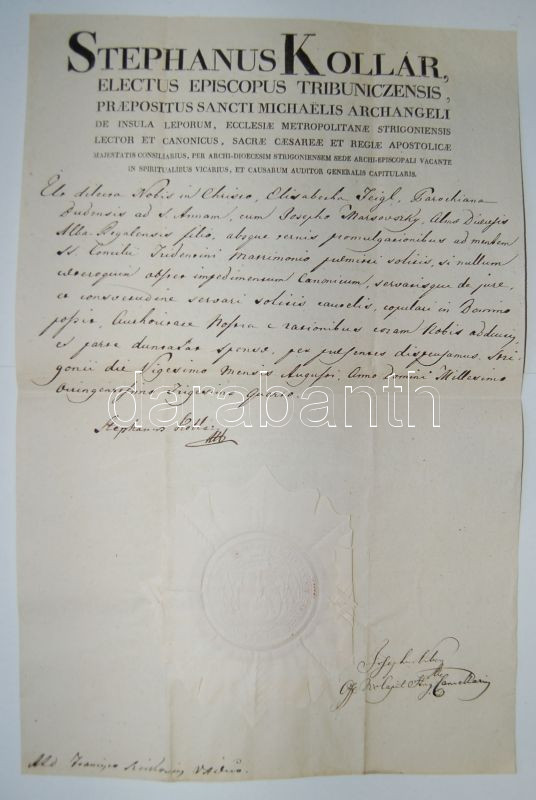 STEPHANUS KOLLÁR,
ELECTUS EPISCOPUS TRIBUNICZENSIS,
PRÆPOSITUS SANCTI MICHAËLIS ARCHANGELI
DE INSULA LEPORUM, ECCLESIÆ METROPOLITANÆ STRIGONIENSIS
LECTOR ET CANONICUS, SACRÆ CÆSAREÆ ET REGIÆ APOSTOLICÆ
MAJESTATIS CONSILIARIUS, PER ARCHI-DIOECESIM STRIGONIENSEM SEDE ARCHI-EPISCOPALI VACANTE
IN SPIRITUALIBUS VICARIUS, ET CAUSARUM AUDITOR GENERALIS CAPITULARIS.
dilecta Nobis in Christo, Elisabetha Teigl, Parochiana
Budensis ad S. Annam, cum Josepho Marsovszky, Almæ Diœcesis
Alba-Regalensis filio, absque ternis promulgationibus ad mentem
SS. Concilii Tridentini Matrimonio præmitti solitis, si nullum
cæteroquin obstet impedimentum Canonicum, servatisque de jure,
et consvetudine servari solitis cautelis, copulari in Domino
possit, Authoritate Nostra e rationibus coram Nobis adductis,
ex parte duntaxat sponsæ, per præsentes dispensamus. Stri-
gonii die Vigesimo Mensis Augusti, Anno Domini Millesimo
Octingentesimo Trigesimo Quarto.
darabanth
Stephanus
Cancellariæ
Francisco